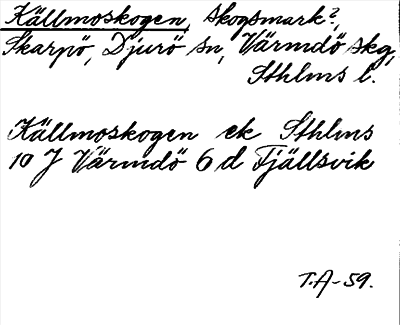 Källmoskogen, skogsmark?,
Skarpö, Djurö sn, Värmdö skg,
Sthlms l.
Källmoskogen ek Sthlms
10 J Värmdö 6 d Fjällsvik
T.A-59.